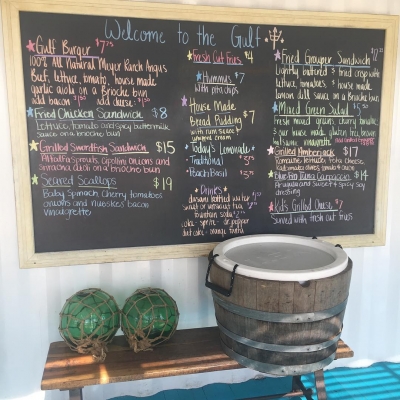 Welcome to the Gulf
Gulf Burger $7.75
100% All Natural Meyer Ranch Angus
Beef, lettuce, tomato, house made
garlic aioli on a Brioche bun
add bacon add cheese
Fried Chicken Sandwich $8
Lettuce, tomato and spicy buttermilk
sauce on a brioche bun
Grilled Swordfish Sandwich $15
Alfalfa Sprouts, Grilled Onions and
Sriracha aioli on a brioche bun
Seared Scallops $19
Baby Spinach Cherry tomatoes
onions and bacon
vinaigrette
Fresh Cut Fries $4
Hummus $7
with pita chips
House Made
Bread Pudding $7
with rum sauce
whipped cream
Today's Lemonade
Traditional
Peach Basil
Drinks
bottled water
sweet or unsweet tea
fountain soda
coke sprite dr pepper
diet coke orange fanta
Fried Grouper Sandwich
Lightly battered & fried crisp with
lettuce, tomatoes, & house made
lemon dill sauce on a brioche bun
Mixed Green Salad
fresh mixed greens, curry tomatoes,
& our house made gluten free brown
balsamic vinaigrette
Grilled Amberjack $17
Romaine lettuce, feta cheese
Tuna Carpaccio $14
Arugula and sweet & spicy soy
dressing
Kid's Grilled Cheese $7
served with fresh cut fries